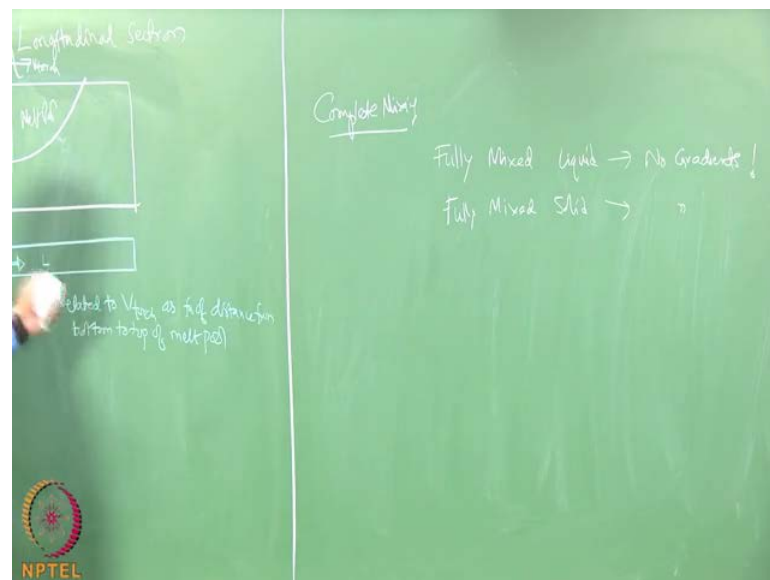 Longitudinal Section
Vtorch
Melt Pool
L
related to Vtorch as fn of distance from
bottom to top of melt pool
Complete Mixing
Fully Mixed Liquid → No Gradients!
Fully Mixed Solid → "
NPTEL